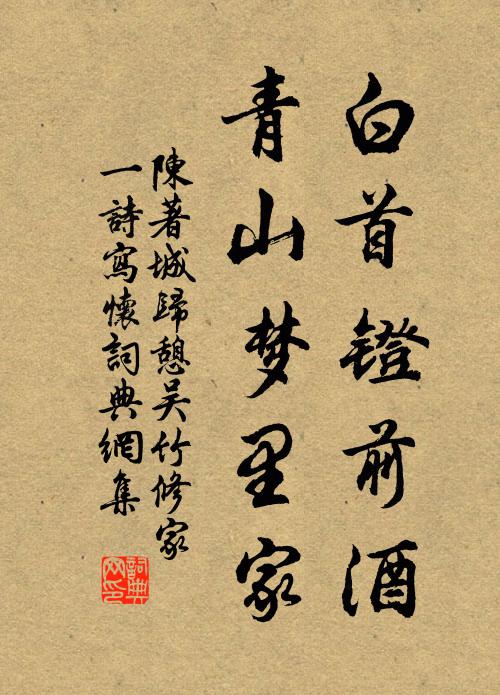 白首镫前酒
青山梦里家
陳著城歸憩吴竹修家
一詩寫懷詞典網集
詞典
网印